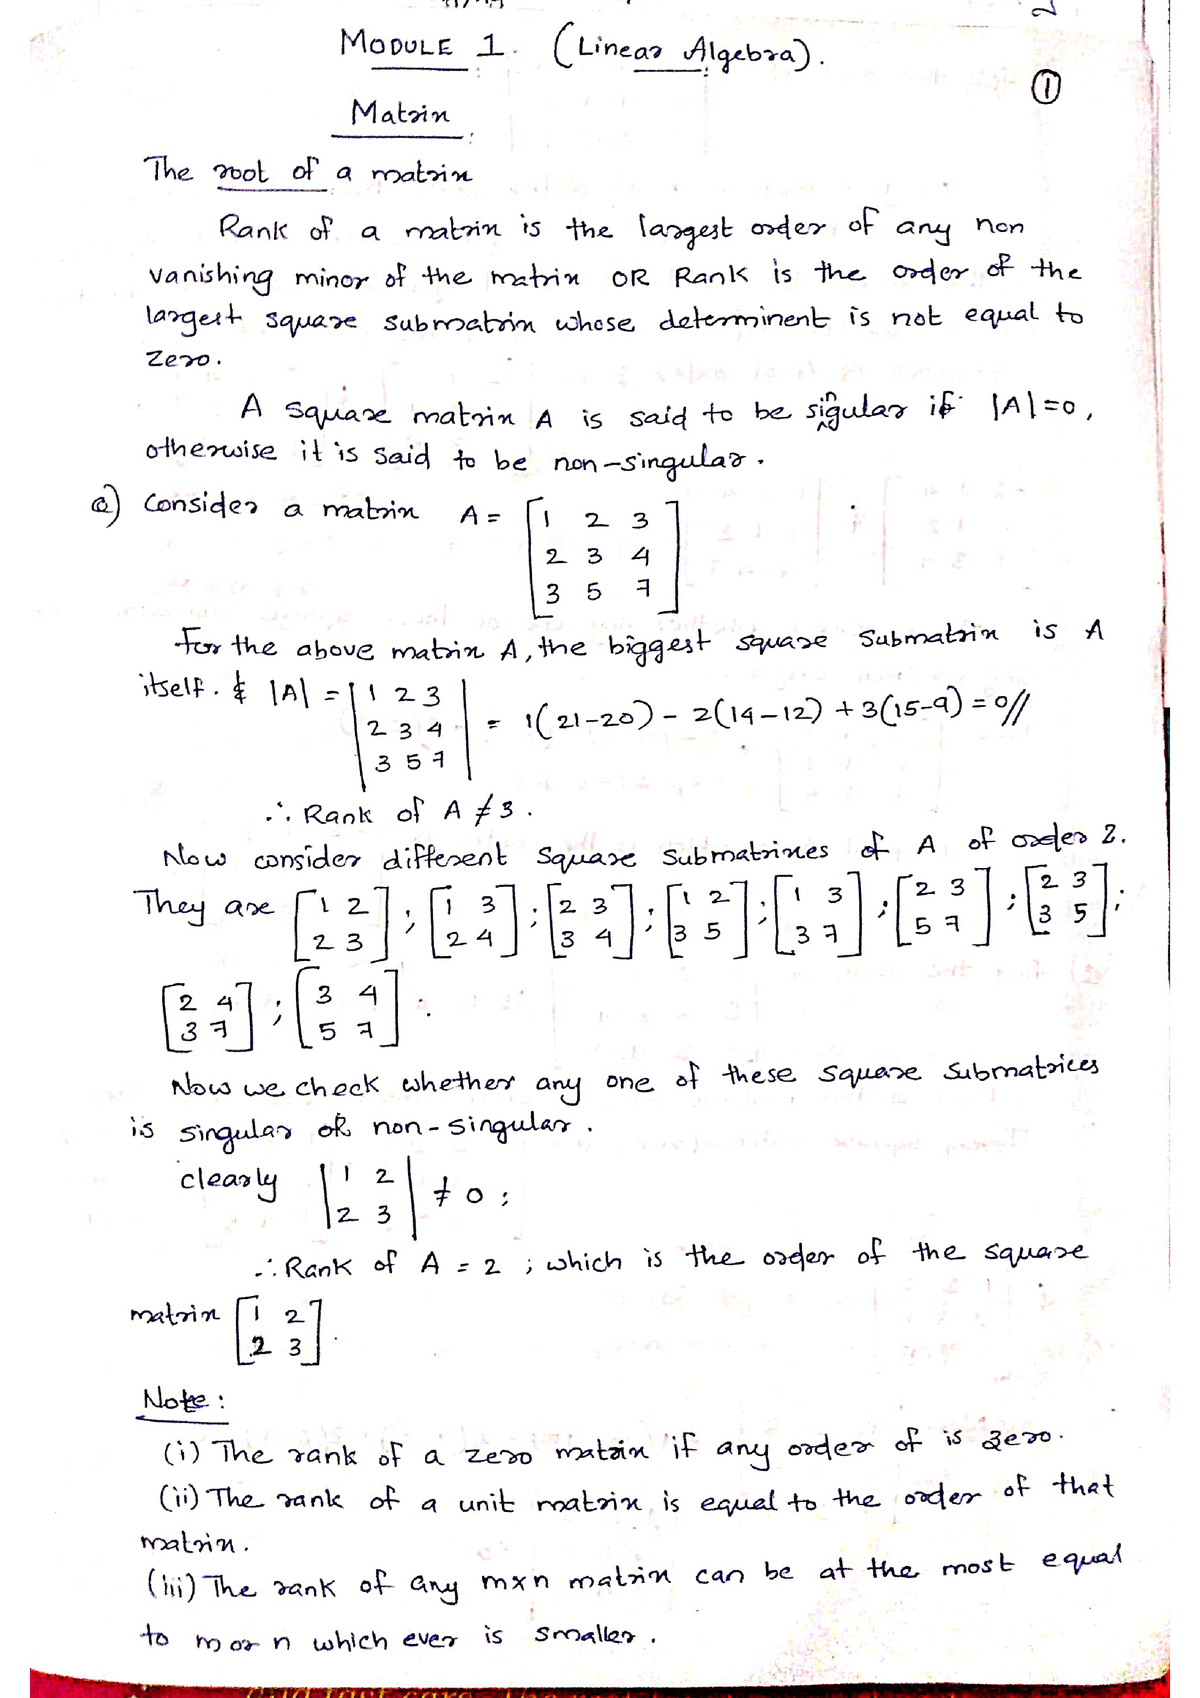 MODULE 1. (Linear Algebra).
①
Matrix
The root of a matrix
Rank of a matrix is the largest order of any non
vanishing minor of the matrix OR Rank is the order of the
largest square submatrix whose determinent is not equal to
Zero.
A square matrix A is said to be singular if |A|=0,
otherwise it is said to be non-singular.
Q) Consider a matrix A = [1 2 3
2 3 4
3 5 7]
For the above matrix A, the biggest square submatrix is A
itself. & |A| = |1 2 3
2 3 4
3 5 7| = 1(21-20) - 2(14-12) + 3(15-9) = 0//
∴ Rank of A ≠ 3.
Now consider different square submatrixes of A of order 2.
They are [1 2; [1 3; [2 3; [1 2; [1 3; [2 3; [2 3;
2 3] 2 4] 3 4] 3 5] 3 7] 5 7] 3 5]
[2 4; [3 4.
3 7] 5 7]
Now we check whether any one of these square submatrices
is singular or non-singular.
clearly |1 2
2 3| ≠ 0 ;
∴ Rank of A = 2 ; which is the order of the square
matrix [1 2
2 3].
Note :
(i) The rank of a zero matrix if any order of is zero.
(ii) The rank of a unit matrix, is equal to the order of that
matrix.
(iii) The rank of any mxn matrix can be at the most equal
to m or n which ever is smaller.